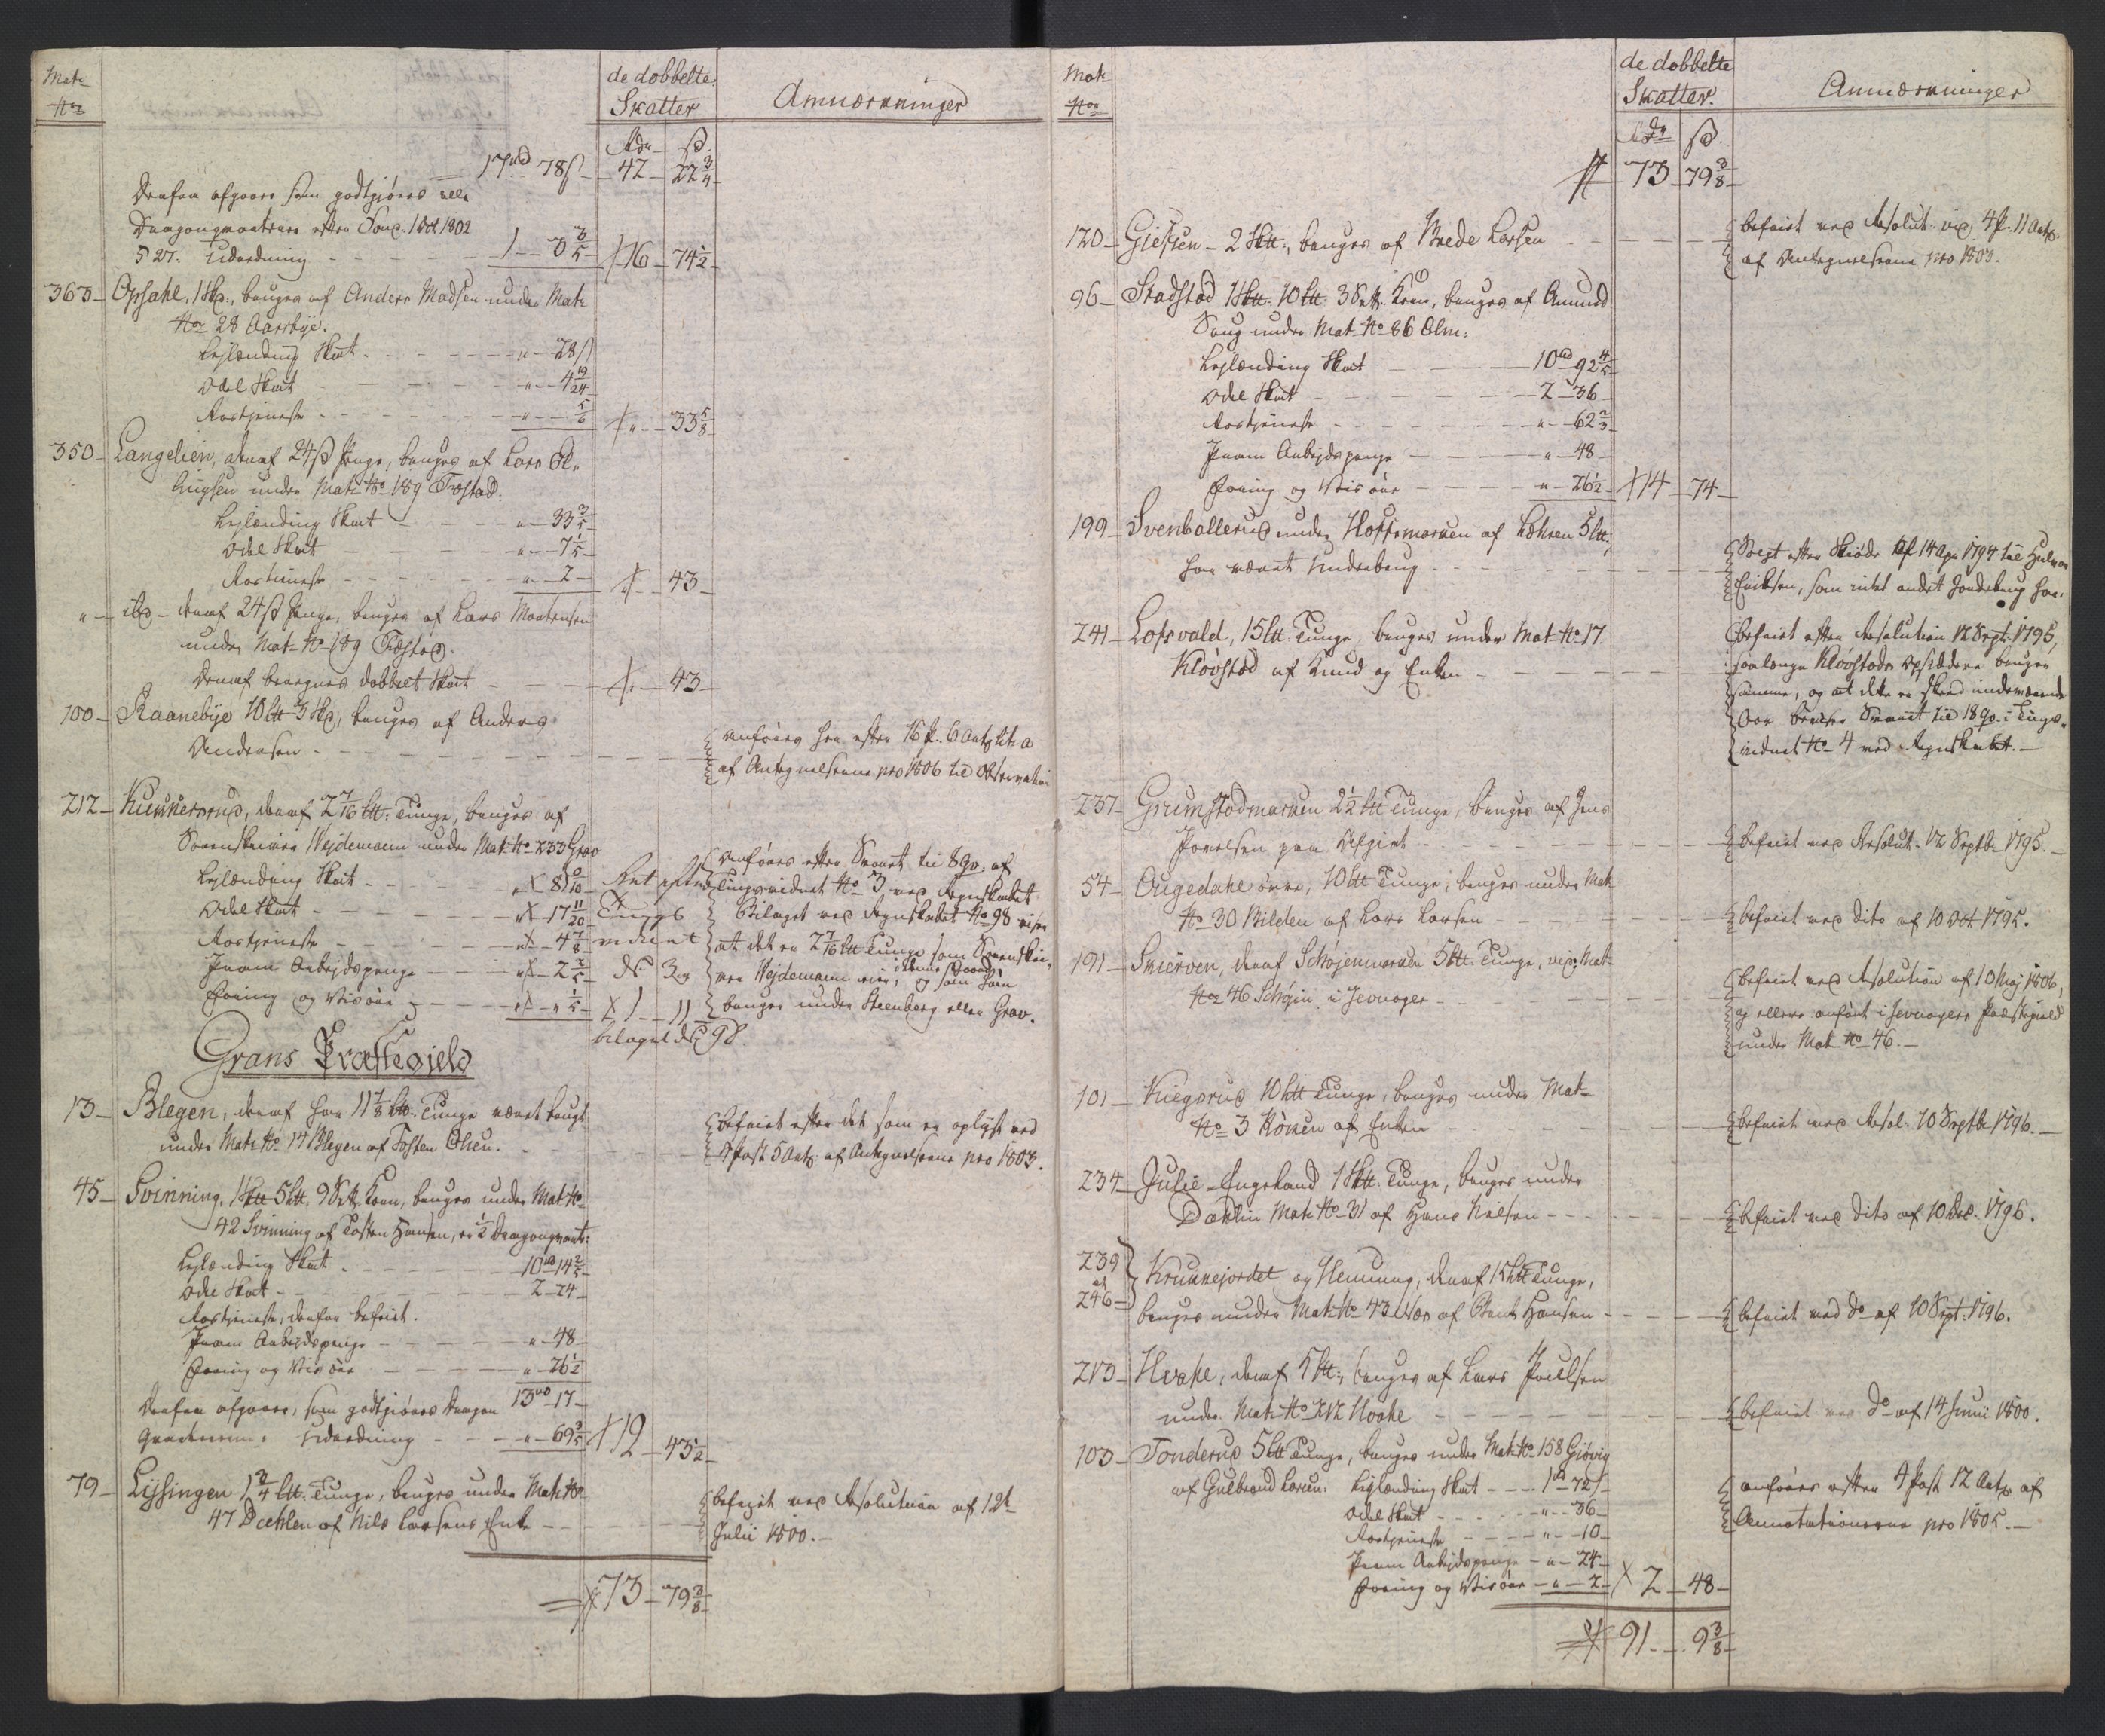 Matr
No
de dobbelte
Skatter
Anmærkninger
Rdr ß
17rd 78ß 42 22 3/4
Derfra afgaar som godtgjøres alle
Dragonqvarterer efter Forordn. 1 Oct 1802
§ 27. Udredning 1 - 3 3/5 16 - 74 1/2
363 Opsahl, 1 Skp, bruges af Anders Madsen under Matr
No 28 Aarsbye.
Lejlænding Skat " 28ß
Odel Skat " 4 19/24
Rostjeneste " 5/6 " 33 5/8
350 Langelien, deraf 24ß Penge, bruges af Lars
under Matr No 189 Tøstad.
Lejlænding Skat " 33 3/5
Odel Skat " 7 1/5
Rostjeneste " 2 " 43
" ibd deraf 24ß Penge, bruges af Lars Mortensen
under Mat No 189 Tøstad.
Deraf beregnes dobbelt Skat " 43
100 Raanebye 10 Ltt 3 Skp, bruges af Anders
Andersen
anføres her efter 16 P. 6 Antg Lit a
af Antegnelserne pro 1806 til Observation
212 Kuннersrud, deraf 2 7/16 Ltt: Tunge, bruges af
Sorenskriver Wejdemann under Mat No 233 Grav
Lejlænding Skat " 81 9/10
Odel Skat " 17 11/20
Rostjeneste " 4 7/8
Pram Arbejdspenge " 2 2/5
Foring og Visøre " " 1/5 1 11
Ret efter
Tings
vidnet
No 3 og
bilaget No 98.
Anføres efter Svaret til 8 Qv. af
Tingsvidnet No 3 ved Regnskabet
Bilaget ved Regnskabet No 98 viser
at det er 2 7/16 Ltt Tunge som Sorenskri-
ver Wejdemann ejer, og som han
bruger under Steenberg eller Grav.
Grans Præstegjeld
13 Blegen, deraf har 11 7/8 Ltt. Tunge været brugt
under Matr No 14 Blegen af Tosten Olsen.
befriet efter det som er oplyst ved
4 Post 5 Antg af Antegnelserne pro 1803.
45 Svinning, 1 Skt 5 Ltt. 9 Sett. Korn, bruges under Mat No
42 Svinning af Tosten Hansen, er 1/2 Dragonqvart:
Lejlænding Skat 10rd 14 2/5
Odel Skat 2 24
Rostjeneste, derfra befriet.
Pram Arbejdspenge " 48
Foring og Visøre " 26 1/2
13rd 17
Derfra afgaar, som godtgjøres Dragon
Qvarterernes Udredning " 69 3/5 12 43 1/2
79 Lysingen 1 3/4 Ltt. Tunge, bruges under Matr No
47 Dæhlen af Nils Larsens Enke
befriet ved Resolution af 12te
Julii 1800.
73 79 3/8
Matr
No
de dobbelte
Skatter.
Anmærkninger
Rdr ß
73 79 3/8
120 Giessen 2 Skt, bruges af Brede Larsen
befriet ved Resolut. vid. 4 P. 11 Antg.
af Antegnelserne pro 1803.
96 Stadstad 1 Skt. 10 Ltt. 3 Sett. Korn, bruges af Amund
Saug under Mat No 86 Elm:
Lejlænding Skat 10rd 92 4/5
Odel Skat 2 36
Rostjeneste " 62 2/3
Pram Arbejdspenge " 48
Foring og Visøre " 26 1/2 14 74
199 Svenballerud under Hoffsmarken af Løhren 5 Ltt,
har været Underbrug
Solgt efter Skiøde af 14 Apr 1794 til Halvor
Eriksen, som intet andet Jordebrug har.
241 Lofsvold, 15 Ltt. Tunge, bruges under Mat No 17
Kløvstad af Knud og Enken
befriet efter Resolution 12 Sept 1795,
saalænge Kløvstads Opsiddere bruger
samme, og at dette er skeed indeværende
Aar beviser Svaret til 18 Qv. i Tings-
vidnet No 4 ved Regnskabet.
237 Grumstadmarken 2 1/2 Ltt Tunge, bruges af Jens
Povelsen paa Afgivt
befriet ved Resolut. 12 Septbr 1795.
54 Ougedahl øvre, 10 Ltt Tunge, bruges under Mat
No 30 Bilden af Lars Larsen
befriet ved dito af 10 Oct 1795.
191 Skierven, deraf Schøjenmarken 5 Ltt. Tunge, vid. Mat
No 46 Schøjen i Jevnager
befriet ved Resolution af 10 Maj 1806,
og ellers anført i Jevnagers Præstegield
under Mat No 46.
101 Kiegsrud 10 Ltt Tunge, bruges under Mat
No 3 Røken af Enken
befriet ved Resol. 10 Septbr 1796.
234 Julie Engeland 1 Skt. Tunge, bruges under
Dæhlin Matr No 31 af Hans Nilsen
befriet ved dito af 10 Dec. 1796.
239
et
246
Krunnejordet og Hennung, deraf 15 Ltt Tunge,
bruges under Matr No 43 Næs af Brent Hansen
befriet ved do af 10 Sept. 1796.
213 Hvahl, deraf 5 Ltt:, bruges af Lars Poulsen
under Matr No 212 Hoahl
befriet ved do af 14 Junii 1800.
103 Tonderud 5 Ltt Tunge, bruges under Matr No 158 Giøvig
af Gulbrand Larsen: Lejlænding Skat 1rd 72ß
Odel Skat " 36
Rostjeneste " 10
Pram Arbejdspenge " 24
Foring og Visøre " 2 2 48
anføres efter 4 Post 12 Antg af
Annotationerne pro 1805.
91 9 3/8